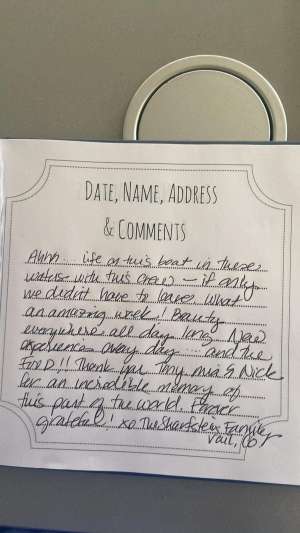 DATE, NAME, ADDRESS
& COMMENTS
Ahhh... life on this boat in these
waters with this crew – if only
we didn't have to leave. What
an amazing week! Beauty
everywhere all day long. New
experiences every day... and the
FOOD!! Thank you Tiny, Mia & Nick
for an incredible memory of
this part of the world. Forever
grateful, xo The Family
Vail, CO